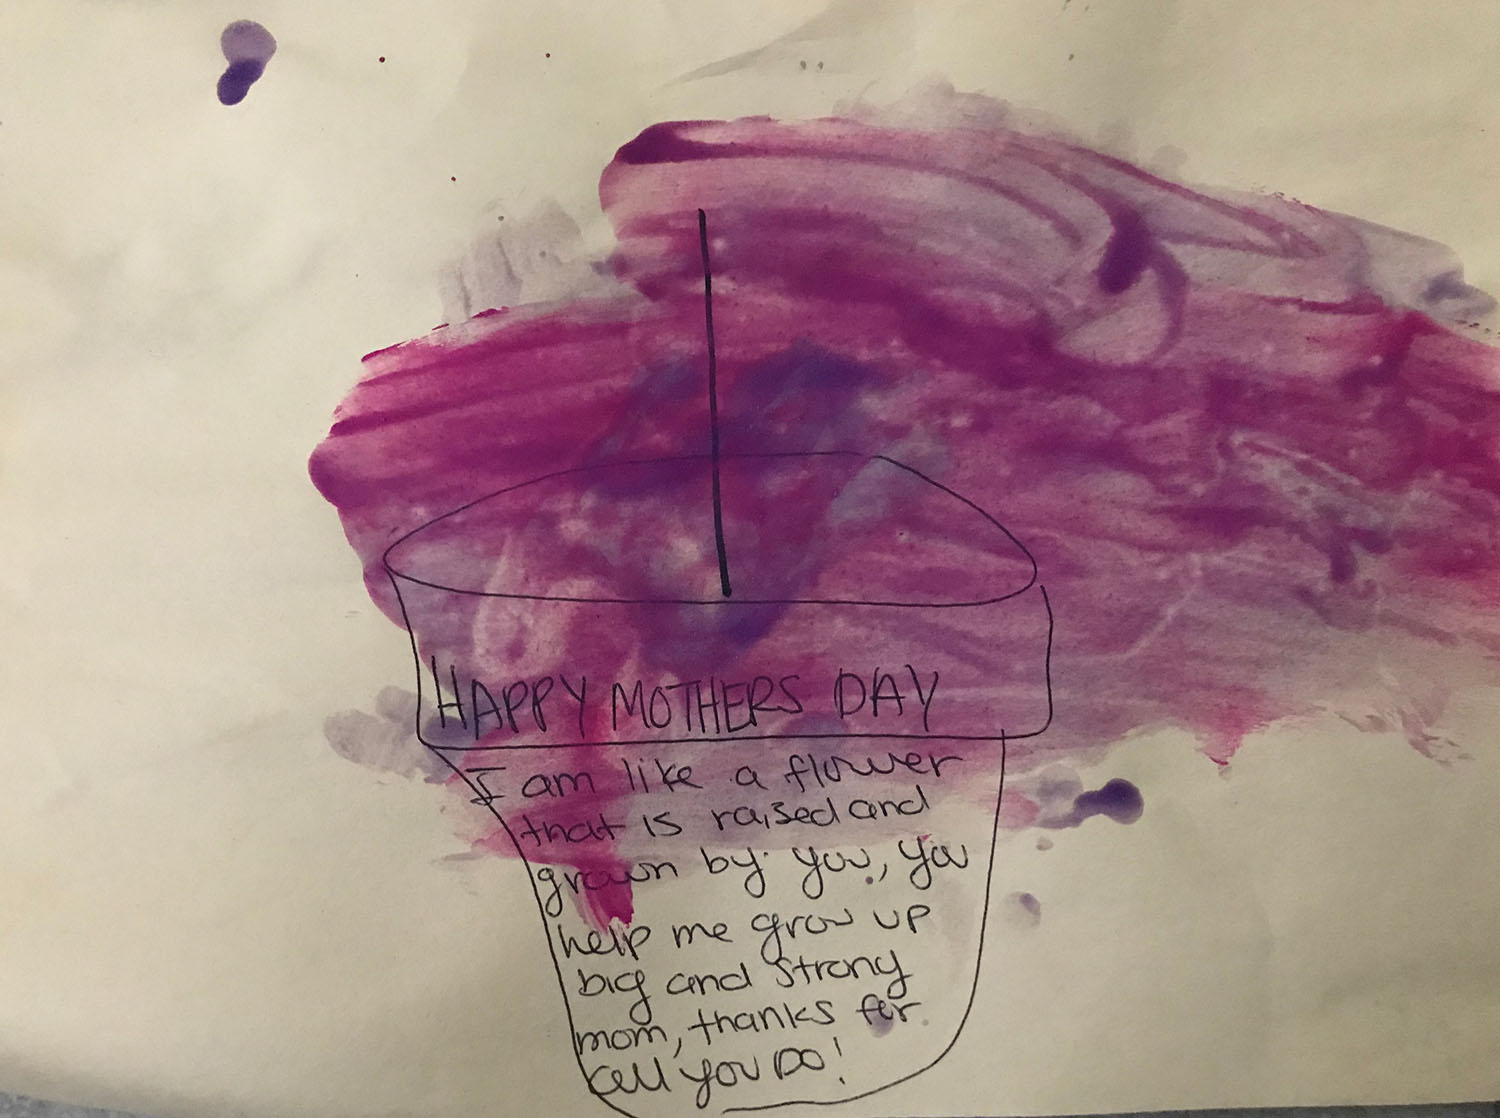 HAPPY MOTHERS DAY
I am like a flower
that is raised and
grown by you, you
help me grow up
big and strong
mom, thanks for
all you DO!